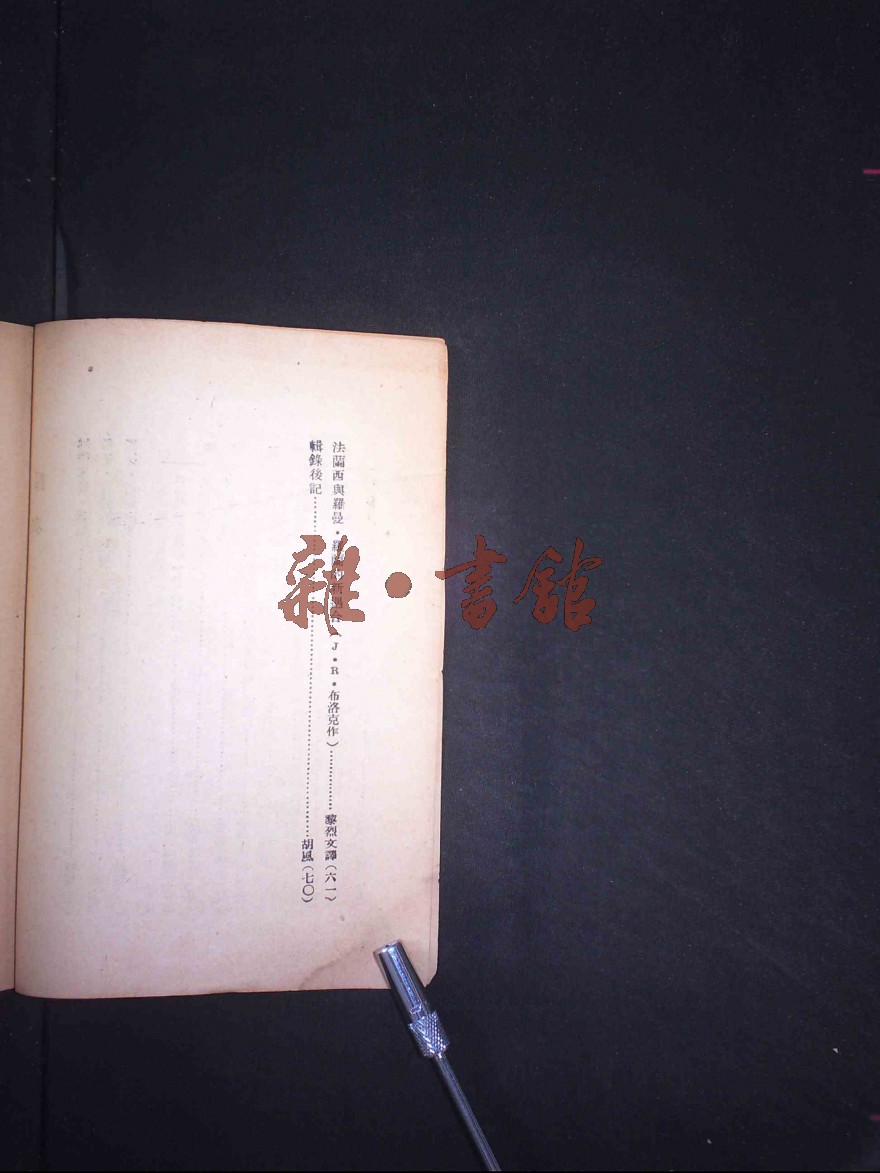 法蘭西與羅曼・羅蘭的新遇合（J・R・布洛克作）……………黎烈文譯（六一）
輯錄後記……………………………………………………胡風（七〇）
雜・書館